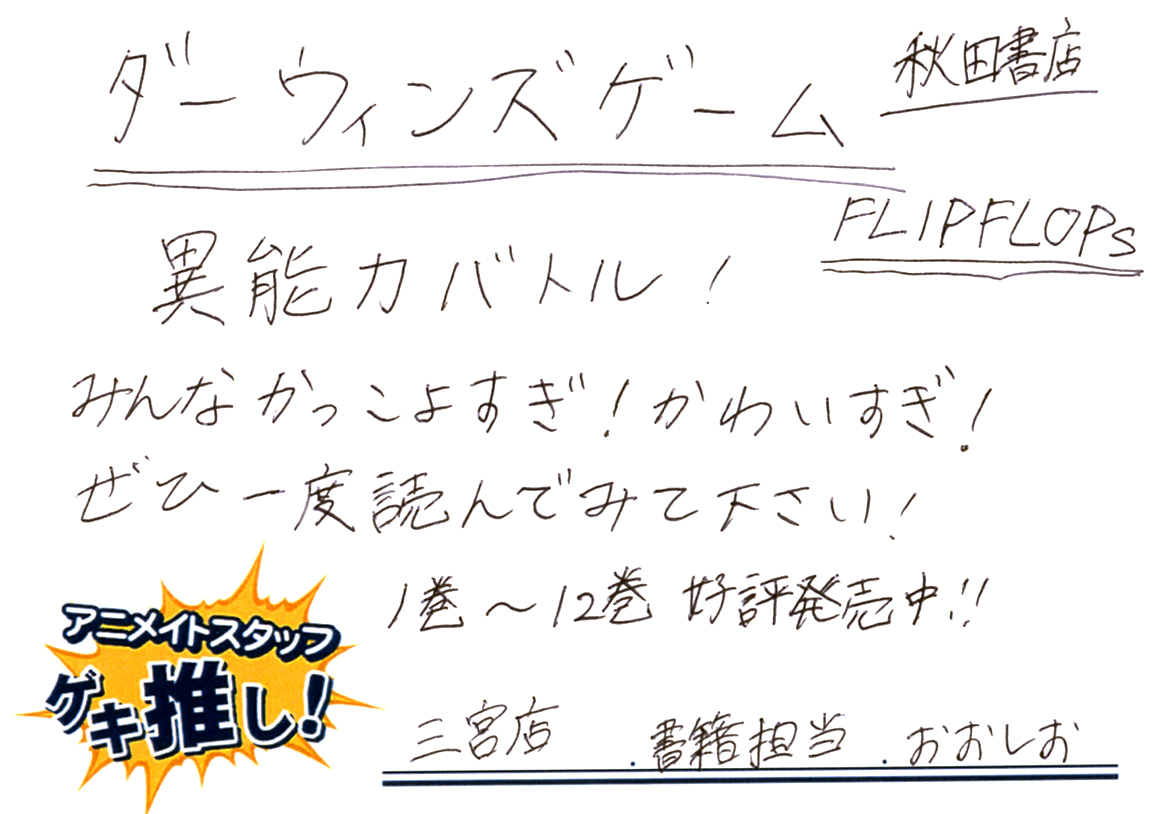 ダーウィンズゲーム
秋田書店
FLIPFLOPs
異能力バトル!
みんなかっこよすぎ!かわいすぎ!
ぜひ一度読んでみて下さい!
1巻~12巻 好評発売中!!
アニメイトスタッフ
ゲキ推し!
三宮店 . 書籍担当 . おおしお